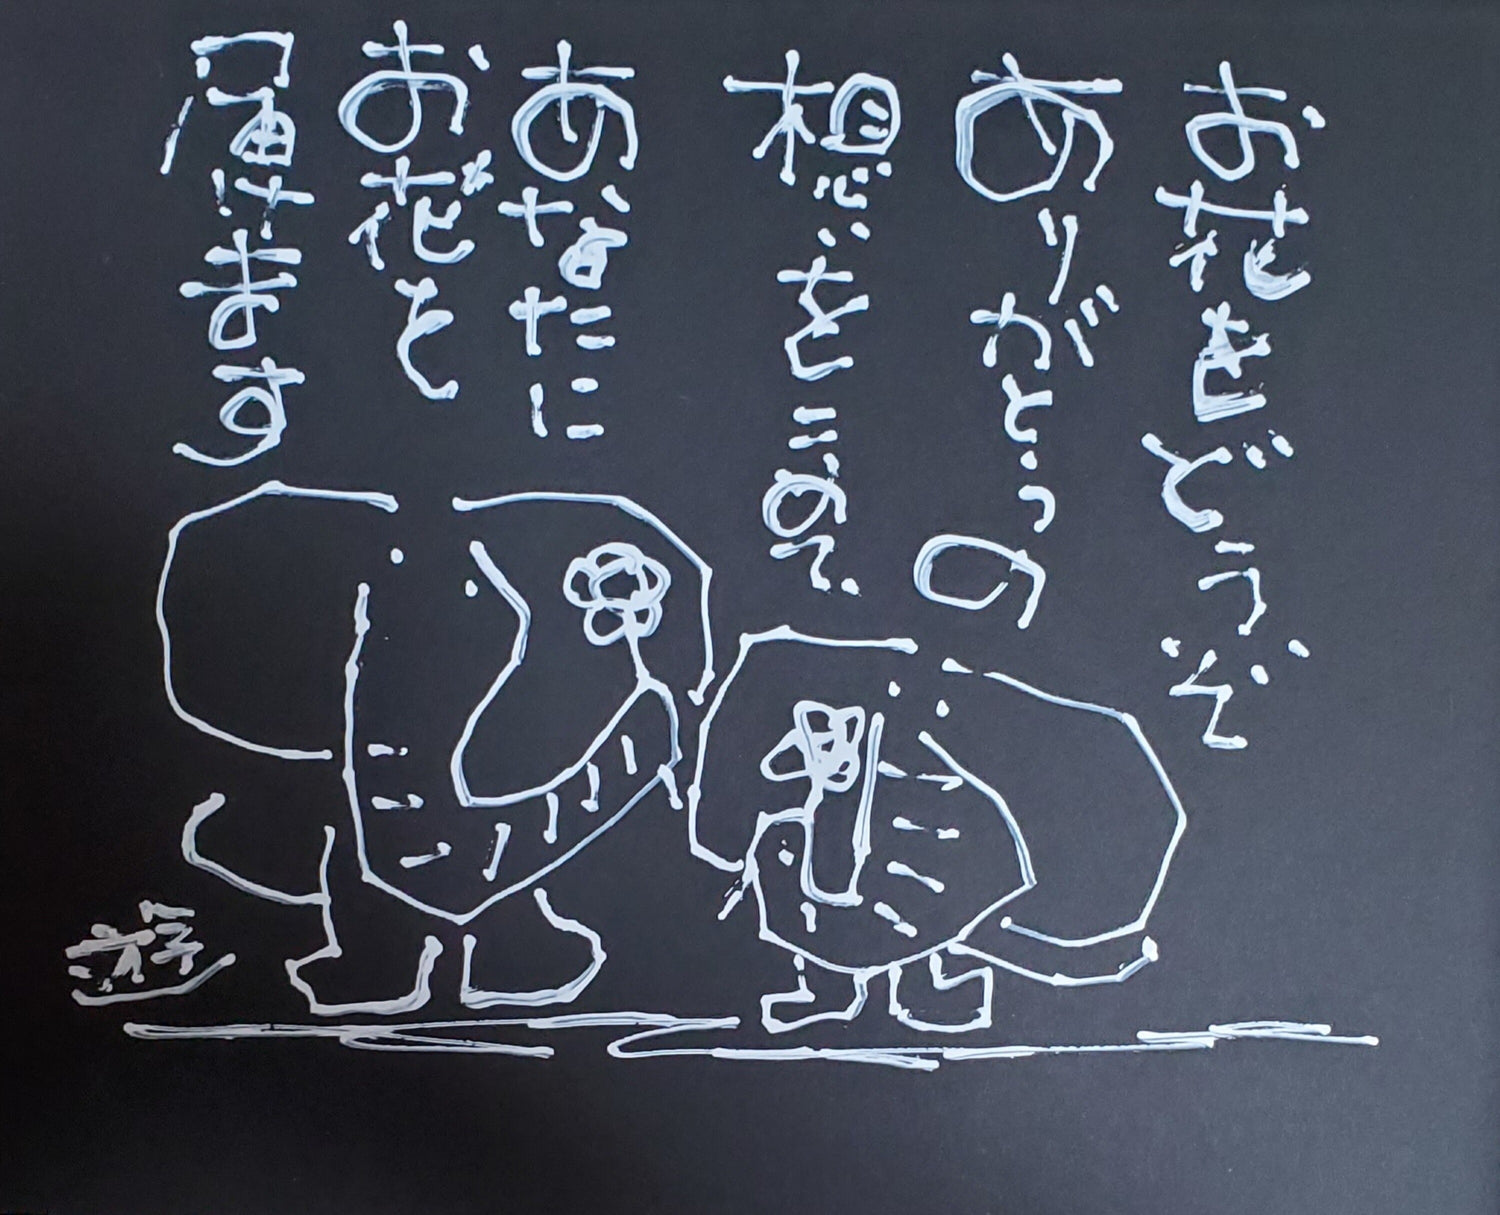 お花をどうぞ
ありがとうの
想いをこめて
あなたに
お花を
届けます